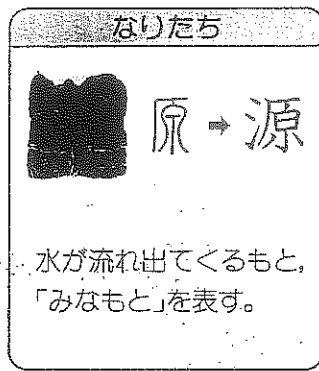 なりたち
原→源
水が流れ出てくるもと,
「みなもと」を表す。